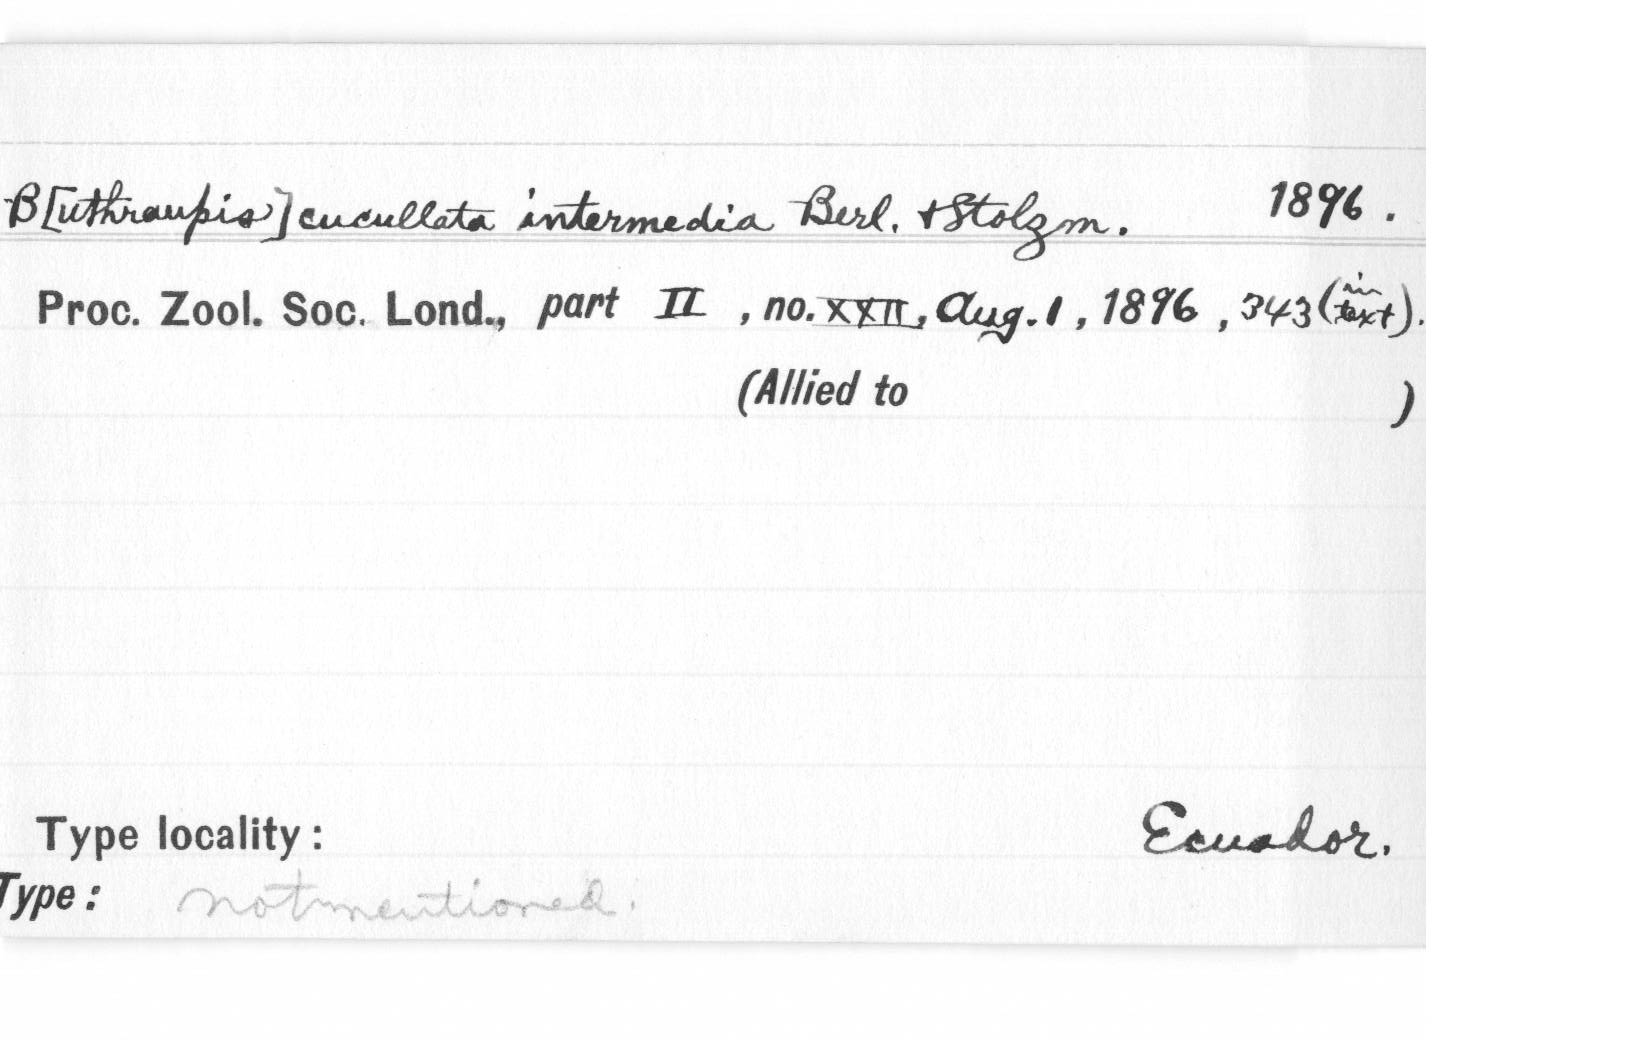 B[uthraupis] cucullata intermedia Berl. + Stolzm. 1896.
Proc. Zool. Soc. Lond., part II, no. XXII, Aug. 1, 1896, 343 (in text).
(Allied to )
Type locality: Ecuador.
Type: not mentioned.